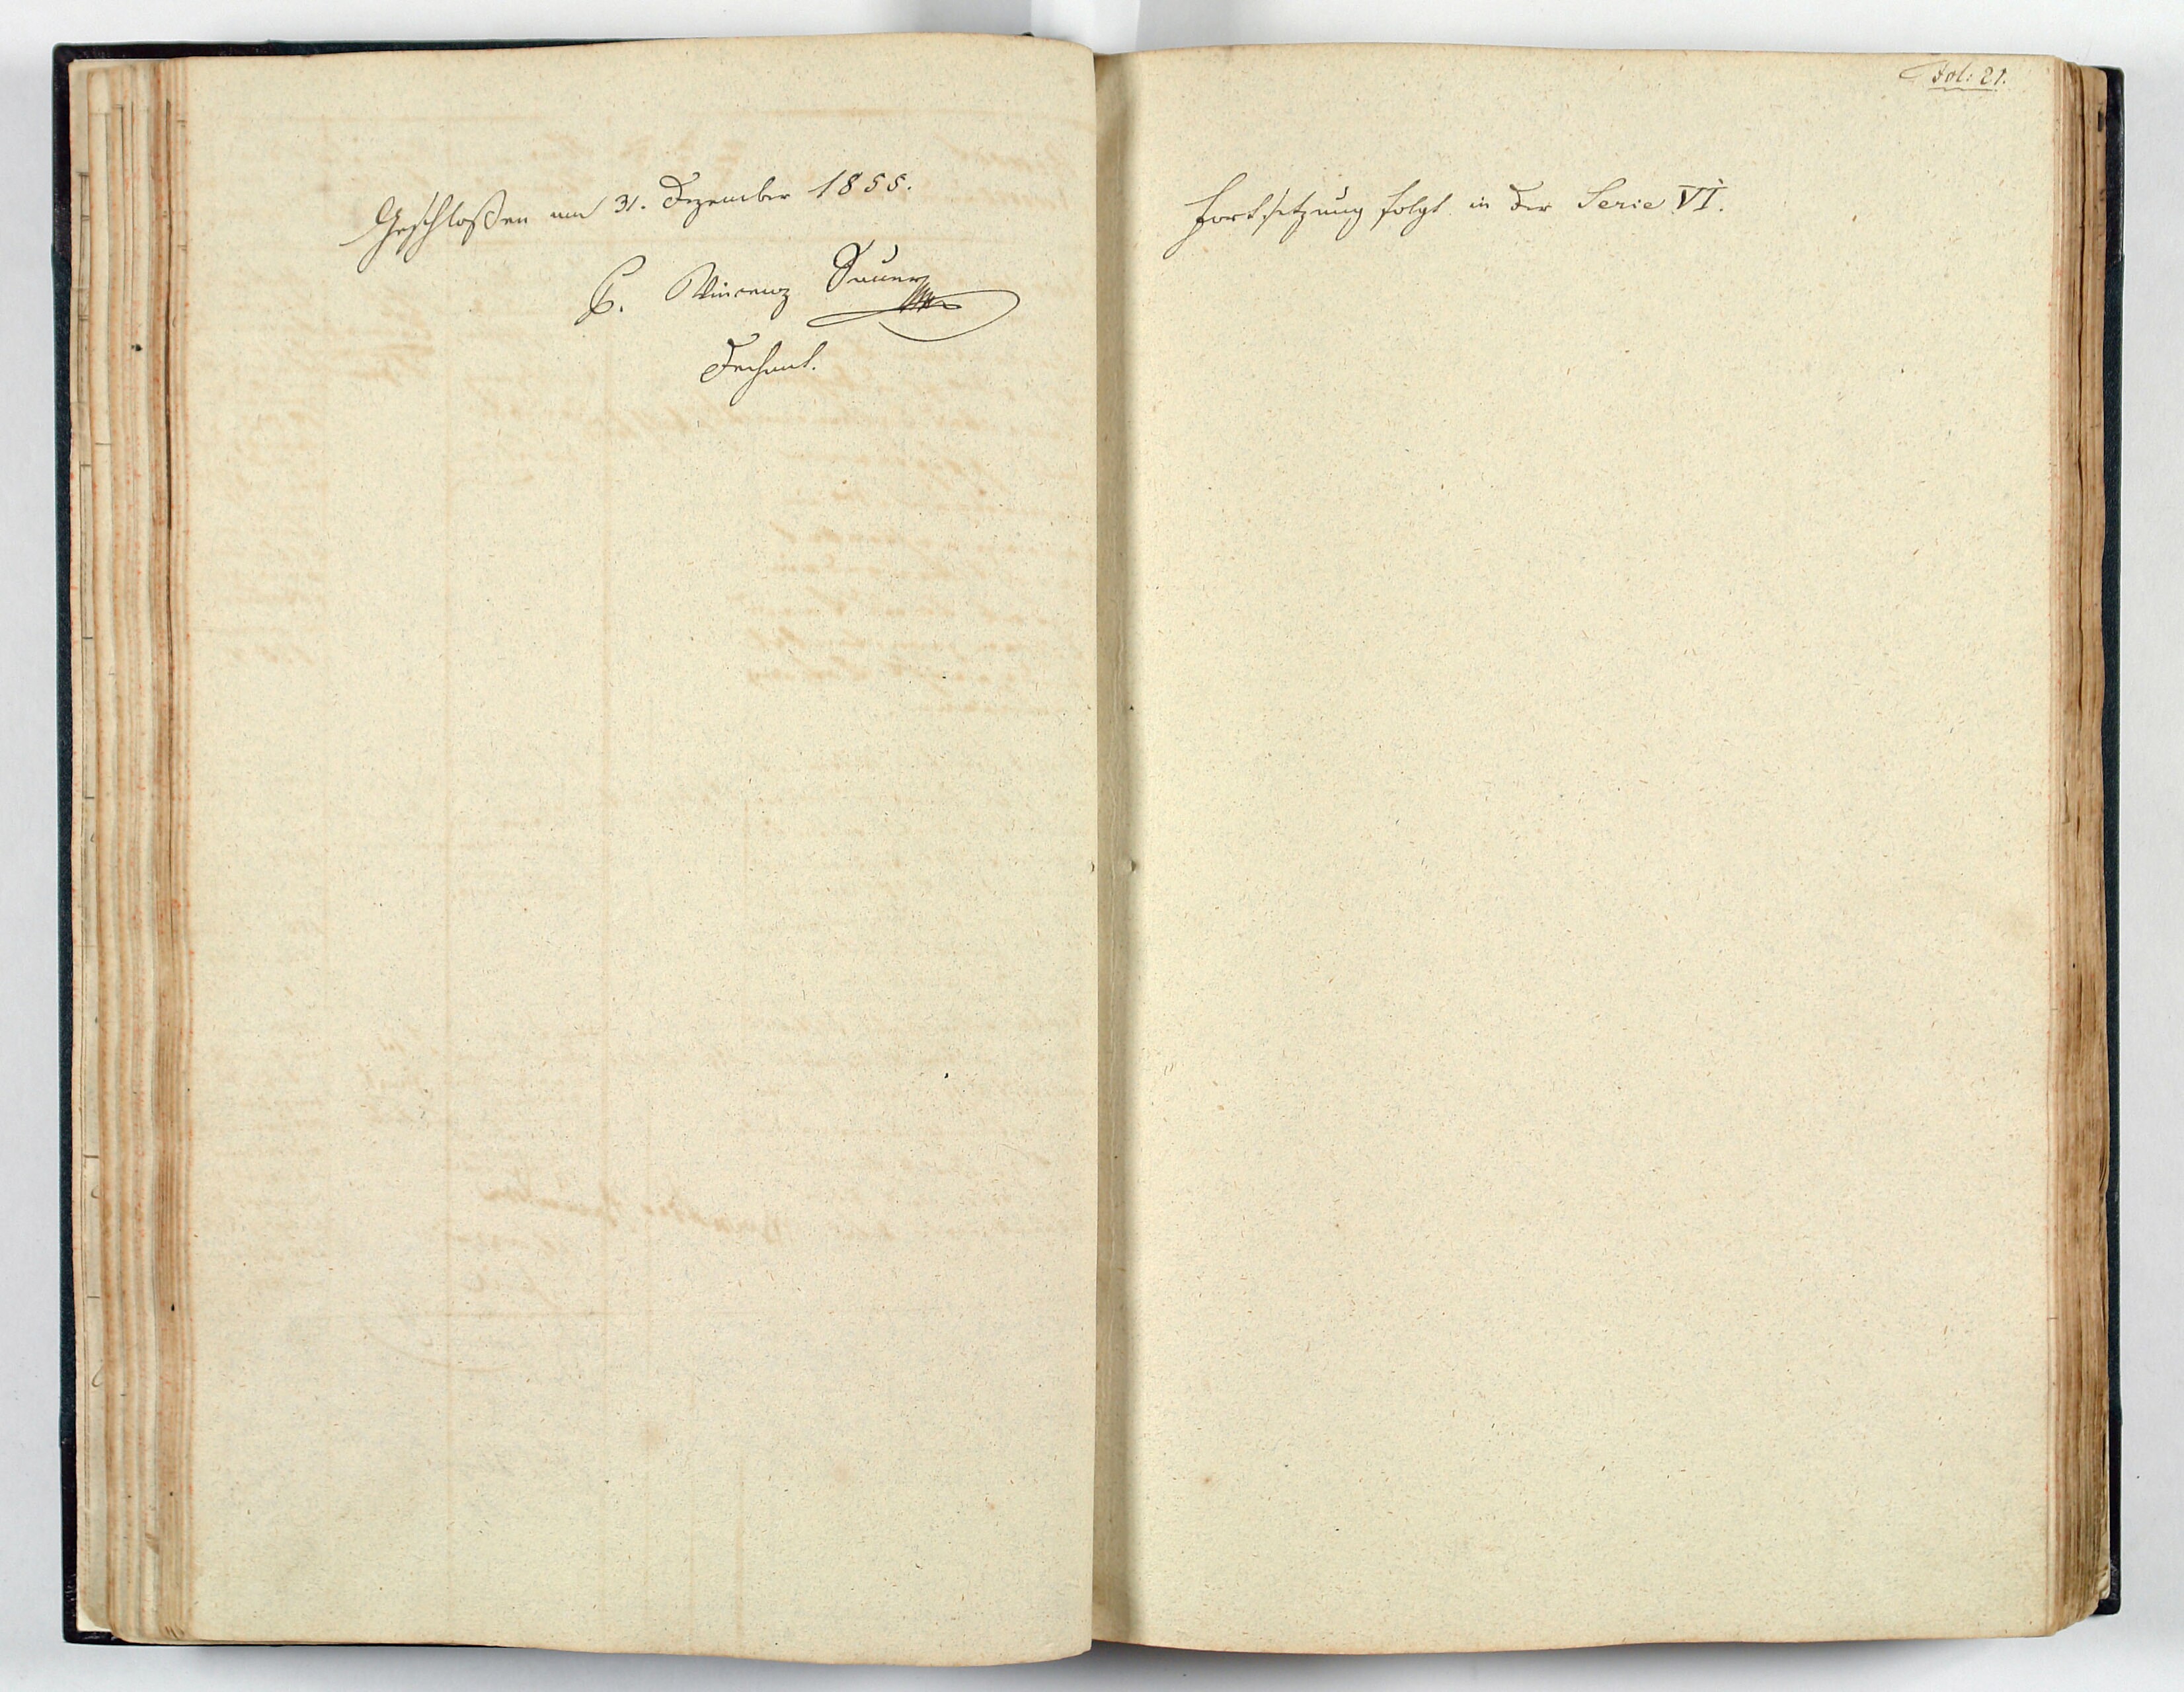 Geschloßen am 31. Dezember 1855.
P. Vincenz Sauer
Dechant.
Fol: 21.
Fortsetzung folgt in der Serie VI.